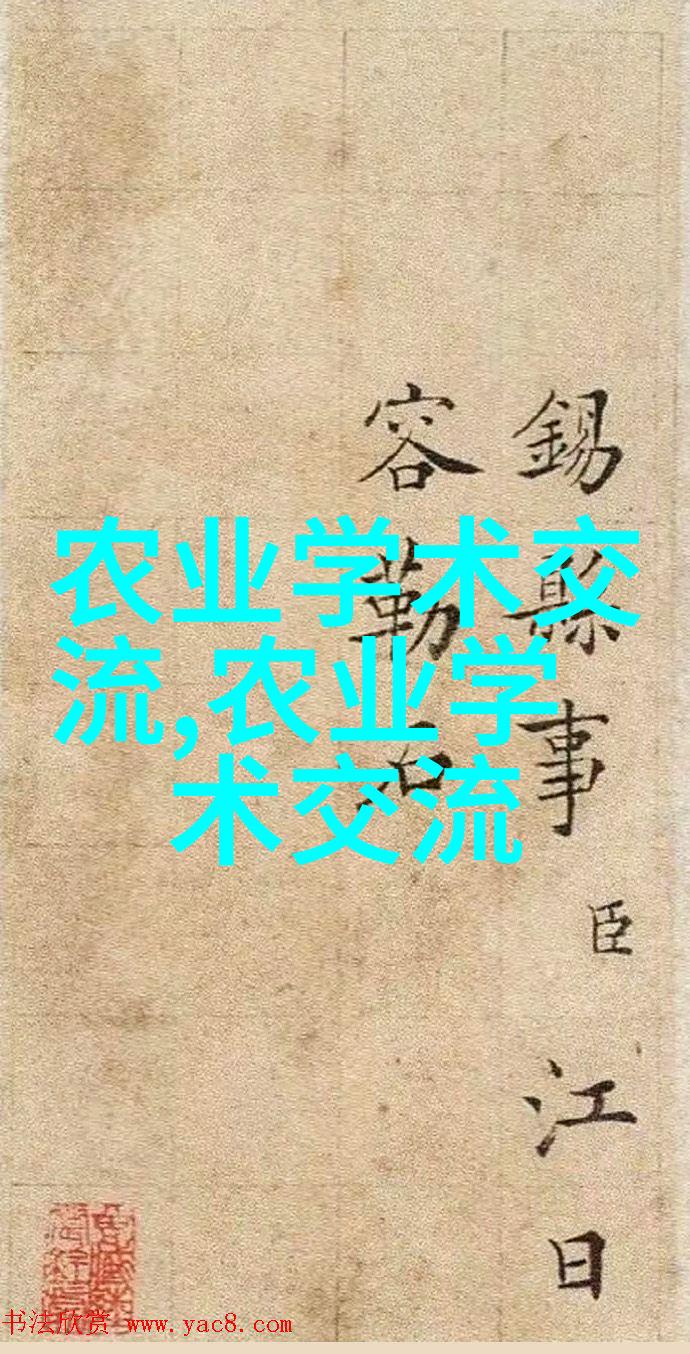 锡縣事臣江日
容勒石
农业学术交
流,农业学
术交流
书法欣赏 www.yac8.com